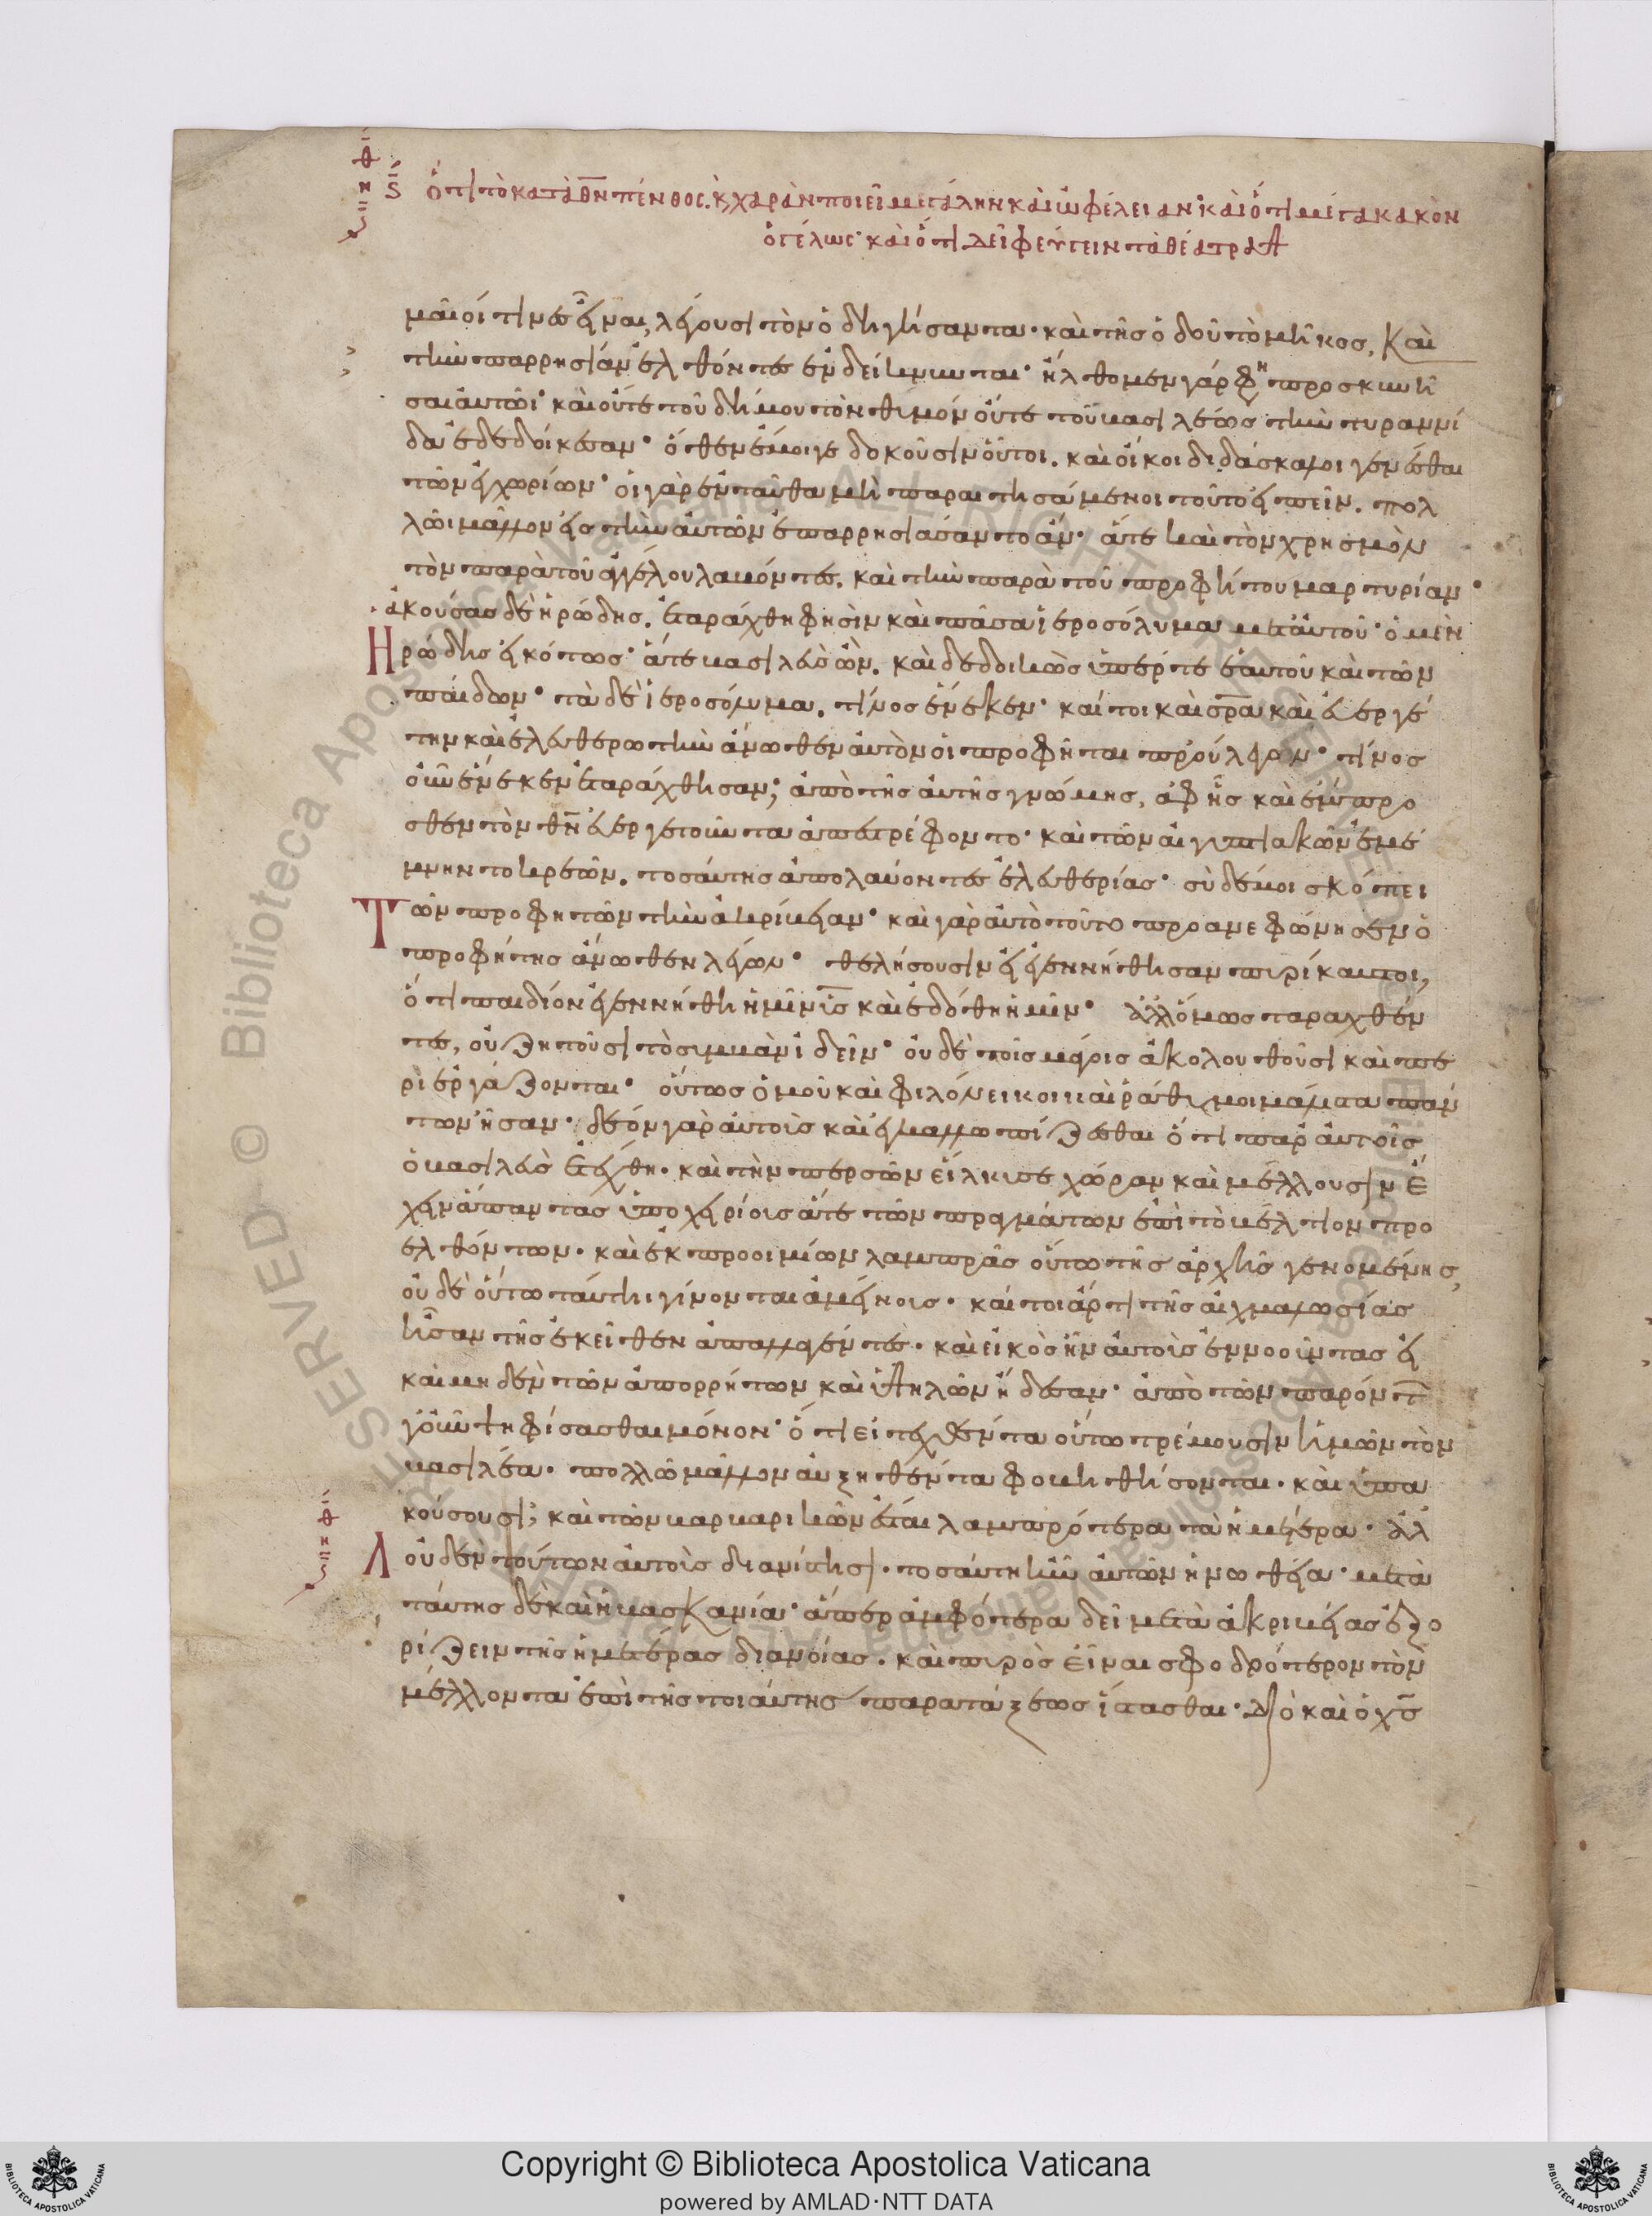 ὅτι τὸ κατὰ θν πένθος. κ, χαρὰν ποιεῖ μεγάλην καὶ ὠφέλειαν· καὶ ὅτι μέγα κακὸν
ὁ γέλως· καὶ ὅτι δεῖ φεύγειν τὰ θέατρα
μαῖοί τινες εἶναι, λέγουσι τὸν ὁδηγήσαντα· καὶ τῆς ὁδοῦ τὸ μῆκος. καὶ
τὴν παρρησίαν ἐλθόντες ἐνδείκνυνται· ἤλθομεν γάρ φη προσκυνῆ
σαι αὐτῶι· καὶ οὔτε τοῦ δήμου τὸν θυμὸν οὔτε τοῦ βασιλέως τὴν τυραννί
δα ἐδεδοίκεσαν· ὅθεν ἔμοιγε δοκοῦσιν οὗτοι. καὶ οἴκοι διδάσκαλοι γενέσθαι
τῶν ἐγχωρίων· οἱ γὰρ ἐνταῦθα μὴ παραιτησάμενοι τοῦτο εἰπεῖν. πολ
λῶι μᾶλλον εἰς τὴν αὐτῶν ἐπαρρησιάσαντο ἄν· ἅτε καὶ τὸν χρησμὸν
τὸν παρὰ τοῦ ἀγγέλου λαβόντες. καὶ τὴν παρὰ τοῦ προφήτου μαρτυρίαν·
ἀκούσας δὲ ἡρώδης. ἐταράχθη φησὶν καὶ πᾶσα ἱεροσόλυμα μετ' αὐτοῦ· ὁ μὲν
Ηρώδης εἰκότως· ἅτε βασιλεὺς ὢν. καὶ δεδοικὼς ὑπέρ τε ἑαυτοῦ καὶ τῶν
παίδων· τὰ δὲ ἱεροσόλυμα. τίνος ἕνεκεν· καίτοι καὶ σρα καὶ εὐεργέ
την καὶ ἐλευθερωτὴν ἄνωθεν αὐτὸν οἱ προφῆται προύλεγον· τίνος
οὖν ἕνεκεν ἐταράχθησαν; ἀπὸ τῆς αὐτῆς γνώμης, ἀφ' ἧς καὶ ἔμπρο
σθεν τὸν θν εὐεργετοῦντα ἀπεστρέφοντο· καὶ τῶν αἰγυπτιακῶν ἐμέ
μνηντο κρεῶν. τοσαύτης ἀπολαύοντες ἐλευθερίας· σὺ δέ μοι σκόπει
Τῶν προφητῶν τὴν ἀκρίβειαν· καὶ γὰρ αὐτὸ τοῦτο προανεφώνησεν ὁ
προφήτης ἄνωθεν λέγων· θελήσουσιν εἰ ἐγεννήθησαν πυρίκαυτοι,
ὅτι παιδίον ἐγεννήθη ἡμῖν υς καὶ ἐδόθη ἡμῖν· ἀλλ' ὅμως ταραχθέν
τες, οὐ ζητοῦσι τὸ συμβὰν ἰδεῖν· οὐδὲ τοῖς μάγοις ἀκολουθοῦσι καὶ πε
ριεργάζονται· οὕτως ὁμοῦ καὶ φιλόνεικοι καὶ ῥάθυμοι μάλιστα πάν
των ἦσαν· δέον γὰρ αὐτοῖς καὶ ἐγκαλλωπίζεσθαι ὅτι παρ' αὐτοῖς
ὁ βασιλεὺς ἐτέχθη. καὶ τὴν περσῶν εἵλκυσε χώραν καὶ μέλλουσιν ἔ
χειν ἅπαντας ὑποχειρίους ἅτε τῶν πραγμάτων ἐπὶ τὸ βέλτιον προ
ελθόντων. καὶ ἐκ προοιμίων λαμπρᾶς οὕτω τῆς ἀρχῆς γενομένης,
οὐδὲ οὕτω ταύτηι γίνονται ἀμείνους. καίτοι ἄρτι τῆς αἰχμαλωσίας
ἦσαν τῆς ἐκεῖθεν ἀπαλλαγέντες. καὶ εἰκὸς ἦν αὐτοὺς ἐννοοῦντας εἰ
καὶ μηδὲν τῶν ἀπορρήτων καὶ ὑψηλῶν ἤδεσαν· ἀπὸ τῶν παρόντ
γοῦν ψηφίσασθαι μόνον· ὅτι εἰ τεχθέντα οὕτω τρέμουσιν ἡμῶν τὸν
βασιλέα. πολλῶ μᾶλλον αὐξηθέντα φοβηθήσονται. καὶ ὑπα
κούσουσι; καὶ τῶν βαρβαρικῶν ἔσται λαμπρότερα τὰ ἡμέτερα· ἀλ
Λ οὐδὲν τούτων αὐτοὺς διανίστησι. τοσαύτη ἦν αὐτῶν ἡ νωθεία· μετὰ
ταύτης δὲ καὶ ἡ βασκανία· ἅπερ ἀμφότερα δεῖ μετὰ ἀκριβείας ἐξο
ρίζειν τῆς ἡμετέρας διανοίας. καὶ πυρὸς εἶναι σφοδρότερον τὸν
μέλλοντα ἐπὶ τῆς τοιαύτης παρατάξεως ἵστασθαι· διὸ καὶ ὁ χς